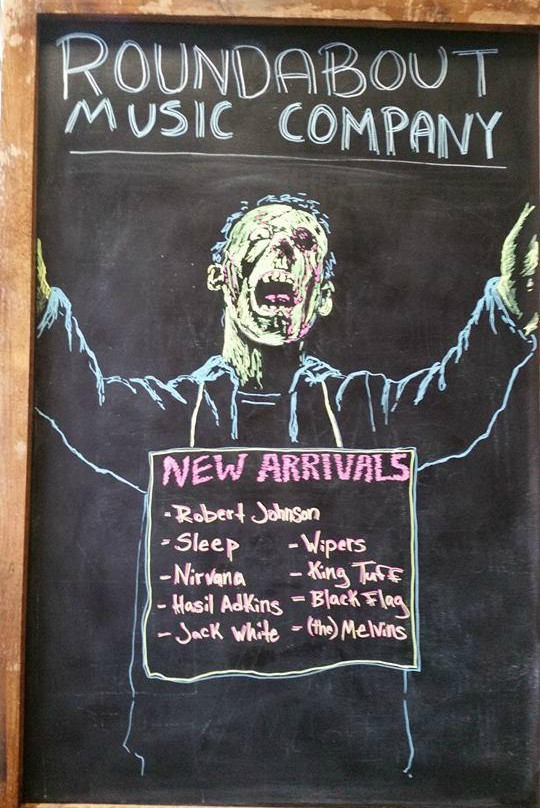 ROUNDABOUT
MUSIC COMPANY
NEW ARRIVALS
- Robert Johnson
- Sleep
- Nirvana
- Hasil Adkins
- Jack White
- Wipers
- King Tuff
- Black Flag
- (the) Melvins